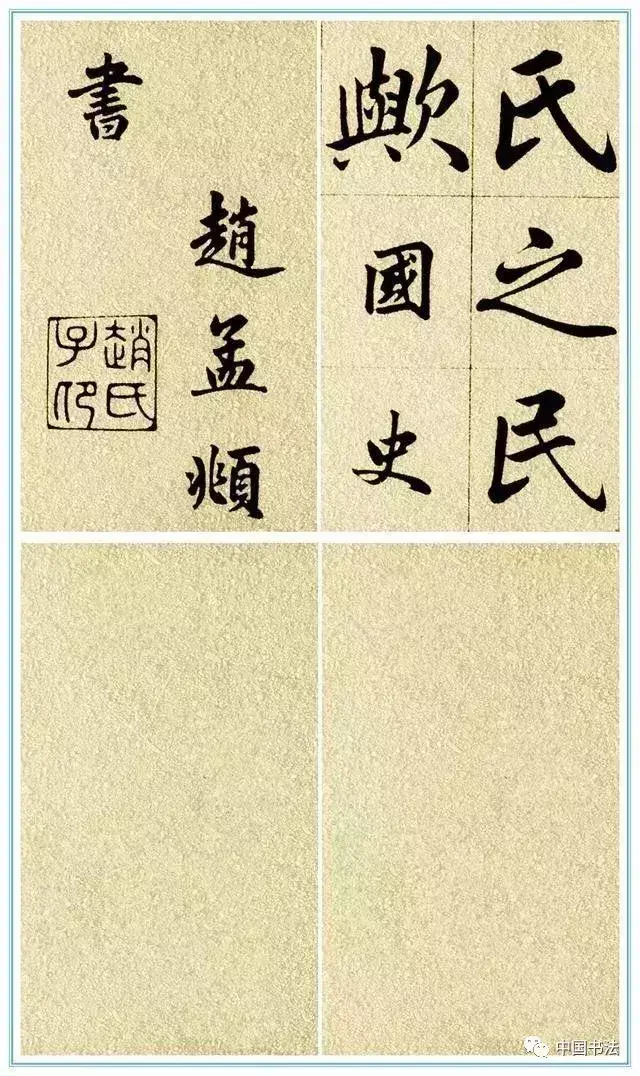 氏之民
歟國史
趙孟頫
書
趙氏
子昂
中国书法